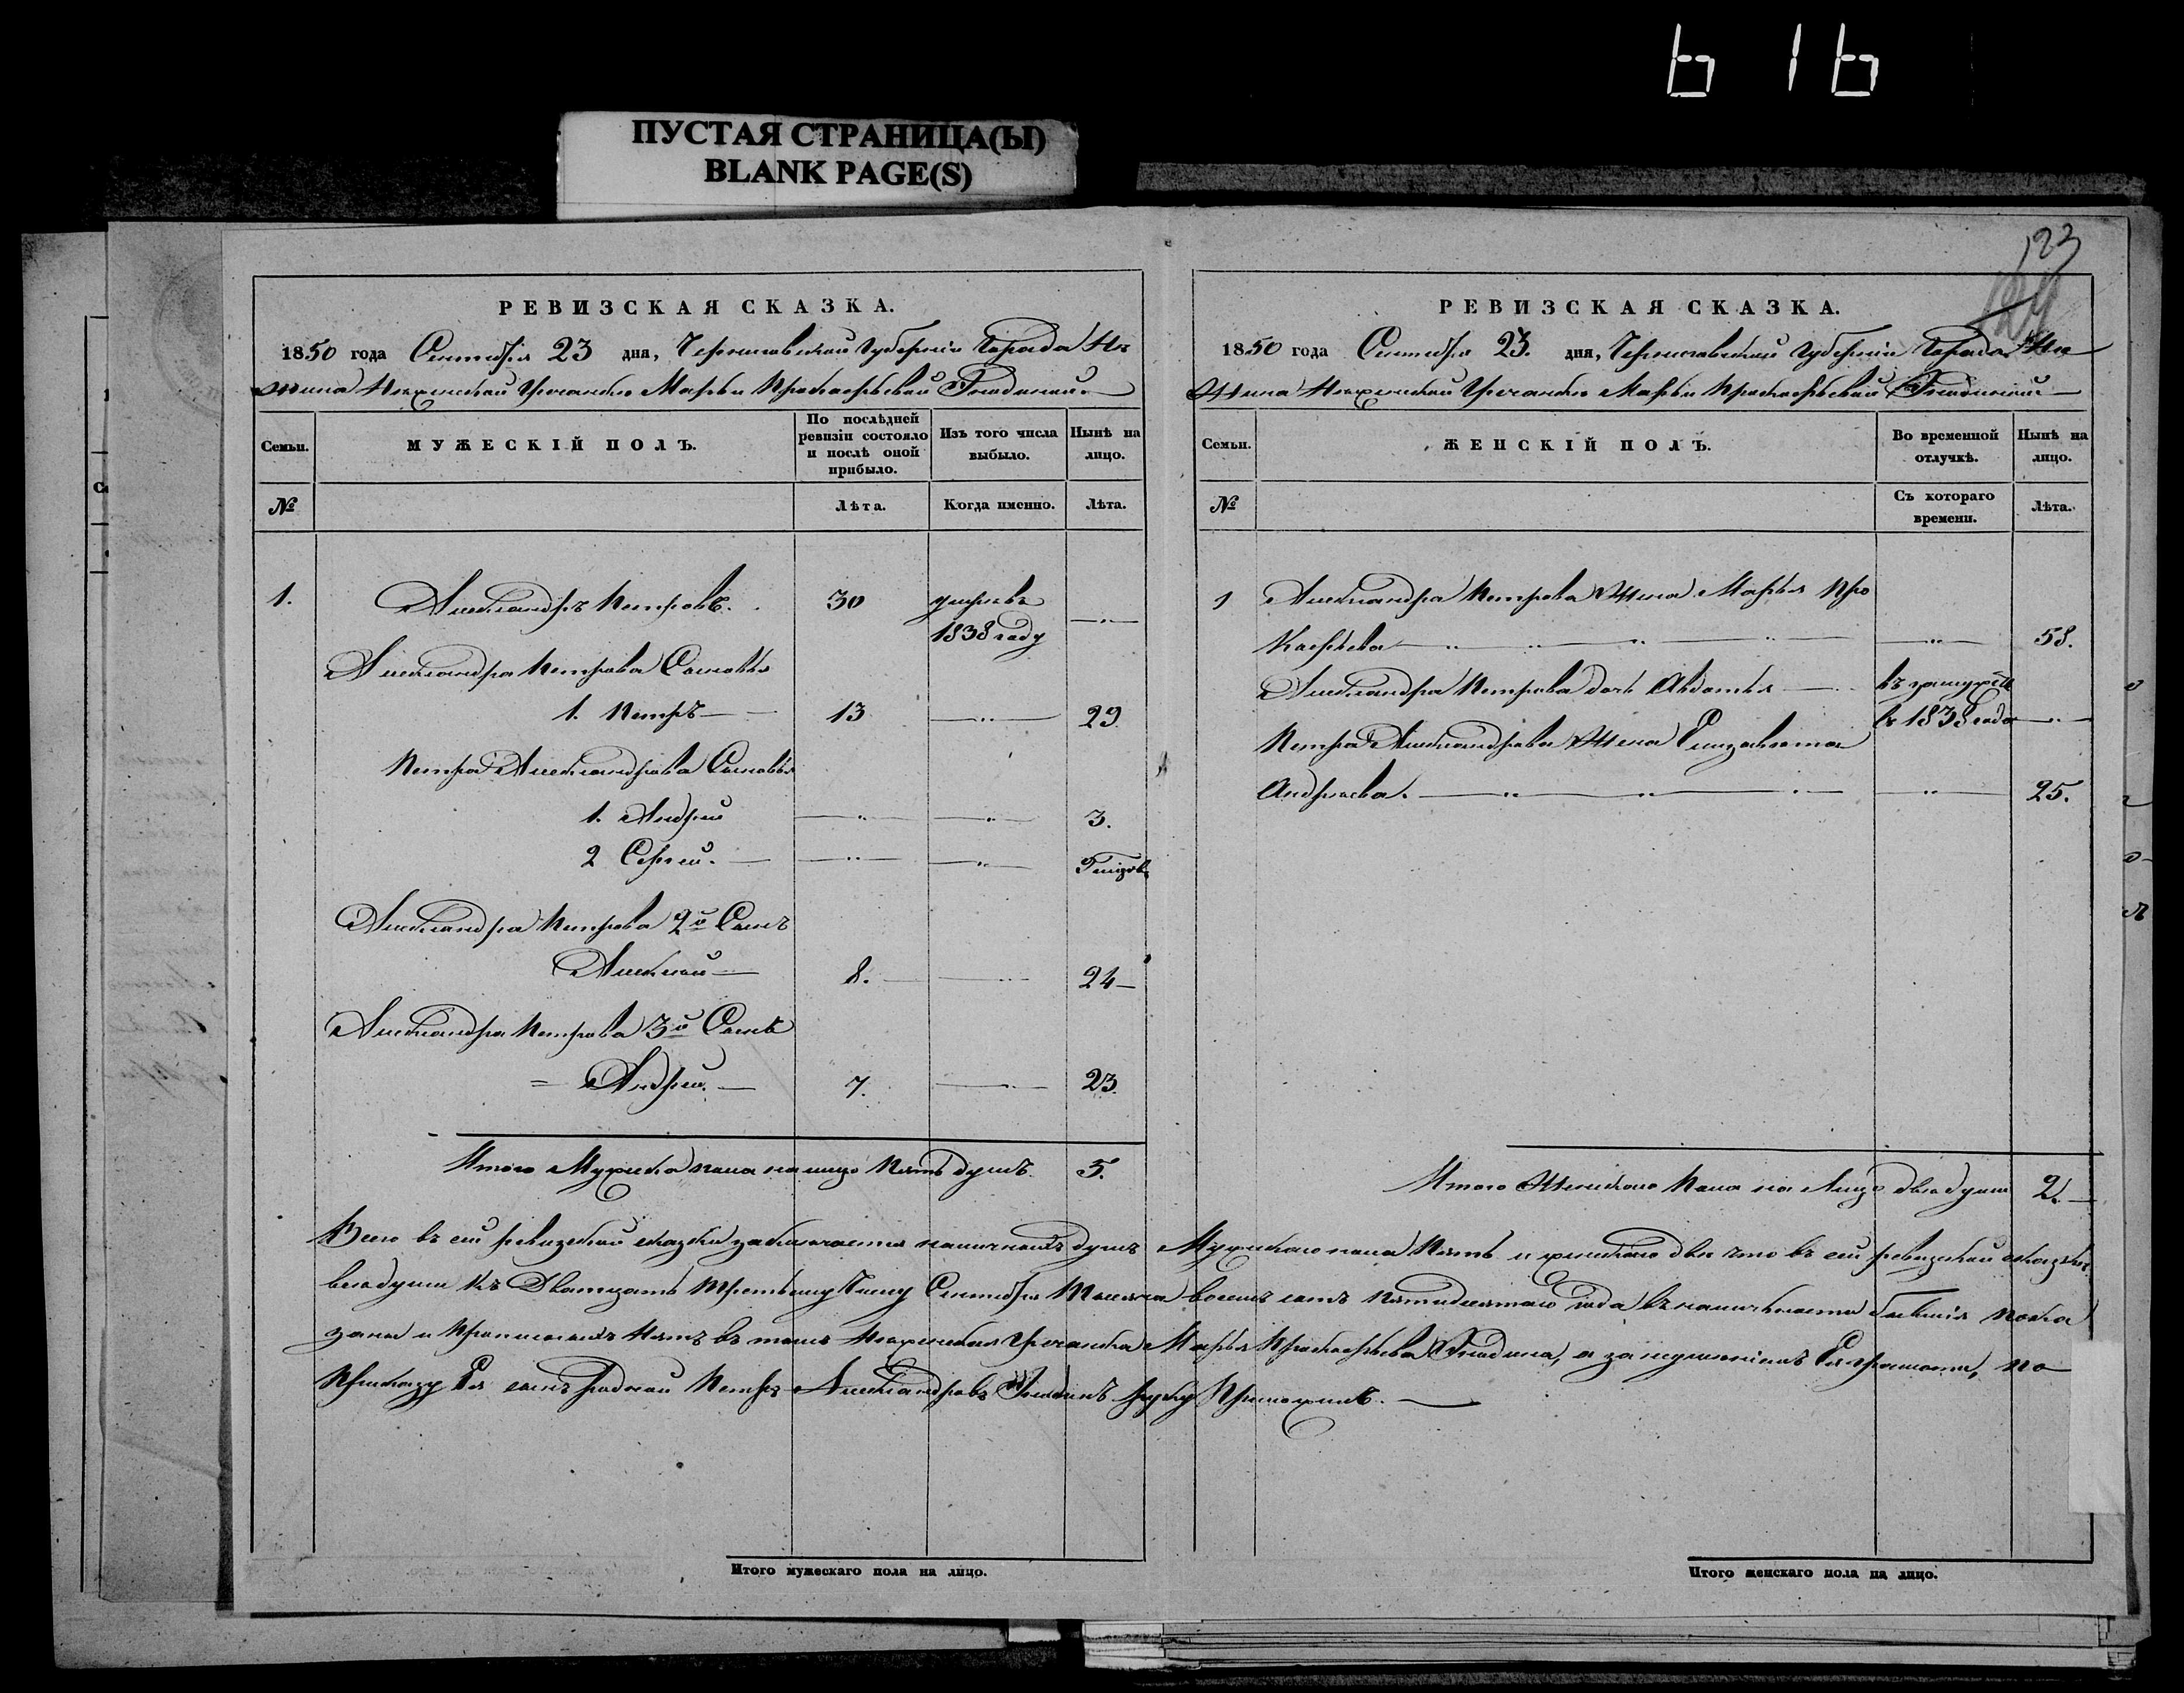 616
ПУСТАЯ СТРАНИЦА(Ы)
BLANK PAGE(S)
123
РЕВИЗСКАЯ СКАЗКА.
1850 года Сентября 23 дня, Черниговской Губернии Города Не
жина Нежинской Гречанки Марьи Прокофьевой
Семьи.
МУЖЕСКІЙ ПОЛЪ.
По послѣдней ревизіи состояло и послѣ оной прибыло.
Изъ того числа выбыло.
Нынѣ на лицо.
№
Лѣта.
Когда именно.
Лѣта.
1. Александръ Петровъ. 30 умревъ
1838 году
Александра Петрова Сыновья
1. Петръ 13 29
Петра Александрова Сыновья
1. Андрей 3.
2 Сергей.
Александра Петрова 2й Сынъ
Алексей 8. 24
Александра Петрова 3й Сынъ
Андрей. 7. 23
Итого Мужеска пола на лицо Пять душъ 5.
РЕВИЗСКАЯ СКАЗКА.
1850 года Сентября 23. дня, Черниговской Губернии Города Не
жина Нежинской Гречанки Марьи Прокофьевой
Семьи.
ЖЕНСКІЙ ПОЛЪ.
Во временной отлучкѣ.
Нынѣ на лицо.
№
Съ котораго времени.
Лѣта.
1 Александра Петрова Жена Марья Про
кофьева 58.
Александра Петрова дочь Авдотья въ замужестве
въ 1838 года
Петра Александрова Жена Елизавета
Андреева. 25.
Итого Женскаго Пола на Лицо две души 2.
Всего въ сей ревизской сказки заключается наличныхъ душъ Мужескаго пола Пять и женскаго две что въ сей ревизской сказке
все души къ Двадцать третьему Числу Сентября Месяца восемъ сотъ пятидесятого года въ наличности бывшия пока
заны и прописныхъ нетъ въ томъ Нежинская Гречанка Марья Прокофьева, а за неумениемъ Ея грамоты, по
Приказу Ея сынъ родной Петръ Александровъ руку Приложилъ.
Итого мужескаго пола на лицо.
Итого женскаго пола на лицо.